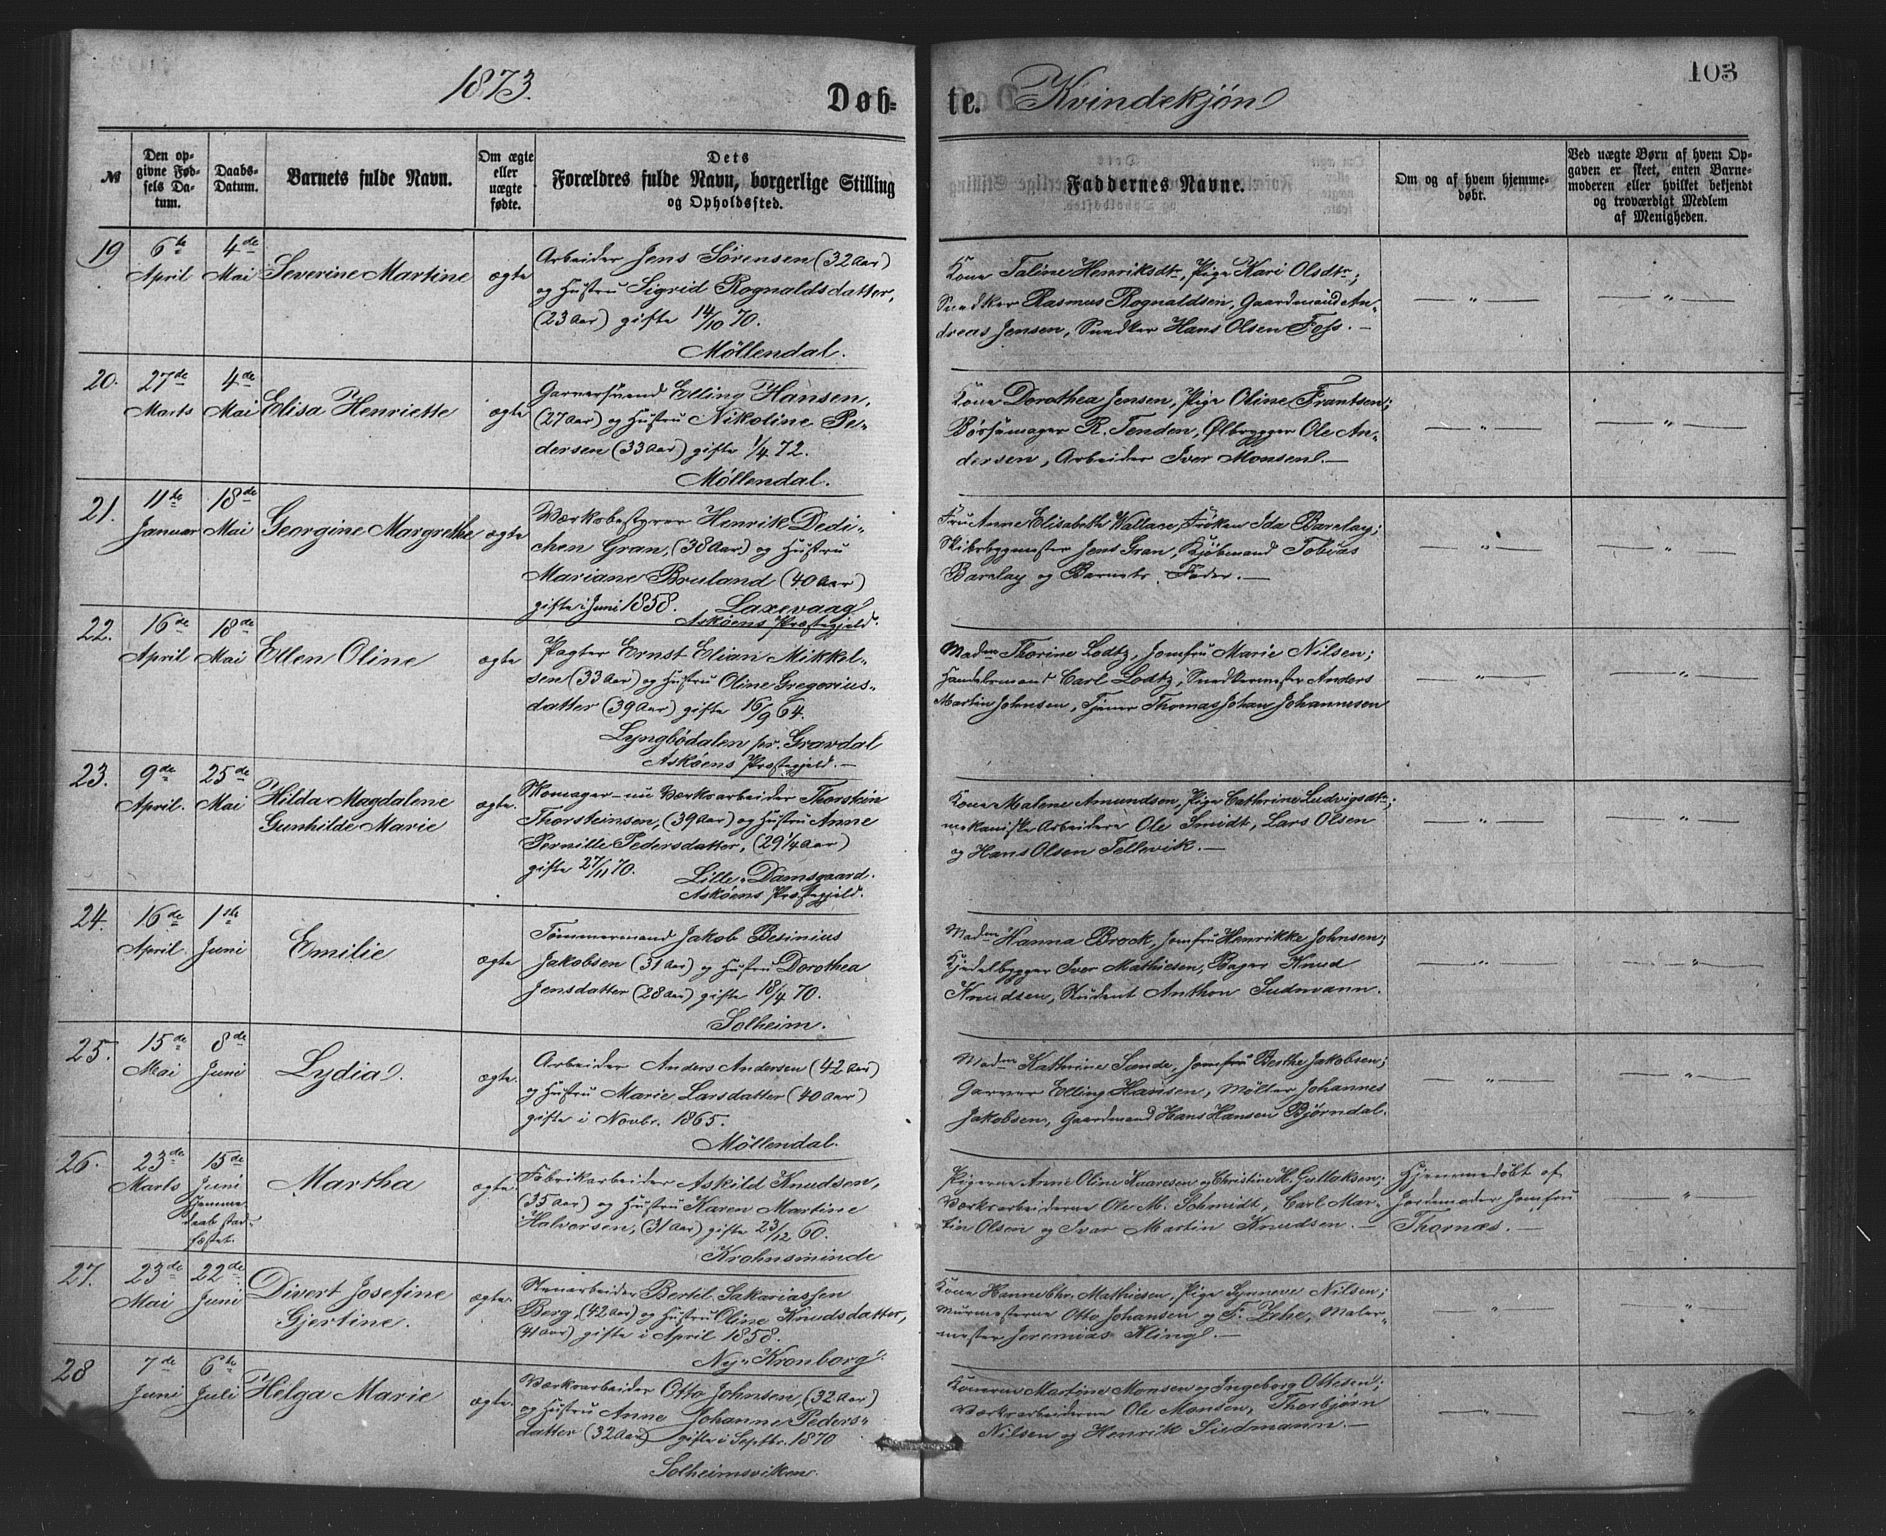 1873.
Døb-
te.
Kvindekjøn
103
№
Den op-
givne Fød-
sels Da-
tum.
Daabs-
Datum.
Barnets fulde Navn.
Om ægte
eller
uægte
fødte.
Dets
Forældres fulde Navn, borgerlige Stilling
og Opholdssted.
Faddernes Navne.
Om og af hvem hjemme-
døbt.
Ved uægte Børn af hvem Op-
gaven er skeet, enten Barne-
moderen eller hvilket bekjendt
og troværdigt Medlem
af Menigheden.
19
6te
April
4de
Mai
Severine Martine
ægte
Arbeider Jens Sørensen (32 Aar)
og Hustru Sigrid Rognaldsdatter,
(23 Aar) gifte 14/10 70.
Møllendal.
Kone Taline Henriksdtr, Pige Kari Olsdtr;
Snedker Rasmus Rognaldsen, Gaardmand An-
dreas Jensen, Snedker Hans Olsen Foss. —
— " —
— " —
20.
27de
Marts
4de
Mai
Elisa Henriette
ægte
Garversvend Elling Hansen,
(27 Aar) og Hustru Nikoline Pe-
dersen (33 Aar) gifte 1/4 72.
Møllendal.
Kone Dorothea Jensen, Pige Oline Frantsen;
Børsemager R. Tenden, Ølbrygger Ole An-
dersen, Arbeider Iver Monsen. —
— " —
— " —
21.
11te
Januar
18de
Mai
Georgine Margrethe
ægte
Værksbestyrer Henrik Dedi-
chen Gran, (38 Aar) og Hustru
Mariane Bruland (40 Aar)
gifte i Juni 1858. Laxevaag
Askøens Præstegjeld.
Fru Anne Elisabeth Wallace, Frøken Ida Barclay;
Skibsbygmester Jens Gran, Kjøbmand Tobias
Barclay og Barnets Fader. —
— " —
— " —
22.
16de
April
18de
Mai
Ellen Oline
ægte
Pagter Ernst Elian Mikkel-
sen (33 Aar) og Hustru Oline Gregorius-
datter (39 Aar) gifte 16/9 64.
Lyngbødalen pr. Gravdal
Askøens Præstegjeld. —
Madm Thorine Lodtz, Jomfru Marie Nilsen;
Handelsmand Carl Lodtz, Snedkermester Anders
Martin Johnsen, Tjener Thomas Johan Johannesen
— " —
— " —
23.
9de
April.
25de
Mai
Hilda Magdalene
Gunhilde Marie
ægte.
Skomager nu Værksarbeider Thorstein
Thorsteinsen, (39 Aar) og Hustru Anne
Pernille Pedersdatter, (29 1/4 Aar)
gifte 27/11 70. Lille-Damsgaard.
Askøens Præstegjeld.
Kone Malene Amundsen, Pige Cathrine Ludvigsdtr;
mekaniske Arbeidere Ole Smidt, Lars Olsen
og Hans Olsen Tellevik. —
— " —
— " —
24.
16de
April.
1ste
Juni
Emilie
ægte
Tømmermand Jakob Besinius
Jakobsen (31 Aar) og Hustru Dorothea
Jensdatter (28 Aar) gifte 18/4 70.
Solheim.
Madm Hanna Brock, Jomfru Henrikke Johnsen;
Kjedelbygger Iver Mathiesen, Bager Knud
Knudsen, Student Anthon Sudmann.
— " —
— " —
25.
15de
Mai
8de
Juni
Lydia.
ægte.
Arbeider Anders Andersen (42 Aar)
og Hustru Marie Larsdatter (40 Aar)
gifte i Novbr. 1865.
Møllendal.
Madm Kathrine Sande, Jomfru Berthe Jakobsen;
Garver Elling Hansen, Møller Johannes
Jakobsen, Gaardmand Hans Hansen Bjørndal.
— " —
— " —
26.
23de
Marts
15de
Juni
Hjemme
daab stad-
fæstet.
Martha
ægte.
Fabrikarbeider Askild Knudsen,
(35 Aar) og Hustru Karen Martine
Halvorsen, (31 Aar) gifte 23/12 60.
Krohnsminde
Pigerne Anne Oline Kaaresen og Christine H. Gullaksen;
Værksarbeiderne Ole M. Schmidt, Carl Mar-
tin Olsen og Ivar Martin Knudsen. —
Hjemmedøbt af
Jordemoder Jomfru
Thornæs. —
— " —
27.
23de
Mai
22de
Juni
Divert Josefine
Gjertine.
ægte.
Stenarbeider Bertil Sakariassen
Berg, (42 Aar) og Hustru Oline Knudsdatter,
(41 Aar) gifte i April 1858.
Ny-Kronborg
Kone Hanne Mathiesen, Pige Synneve Nilsen;
Murmesterne Otto Johansen og F. Zehe, Maler-
mester Jeremias Kling. —
— " —
— " —
28
7de
Juni
6te
Juli
Helga Marie
ægte.
Værksarbeider Otto Johnsen, (32 Aar)
og Hustru Anne Johanne Peders-
datter (32 Aar) gifte i Septbr. 1870
Solheimsviken.
Konerne Martine Monsen og Ingeborg Ottesen;
Værksarbeiderne Ole Monsen, Thorbjørn
Nilsen og Henrik Sudmann. —
— " —
— " —